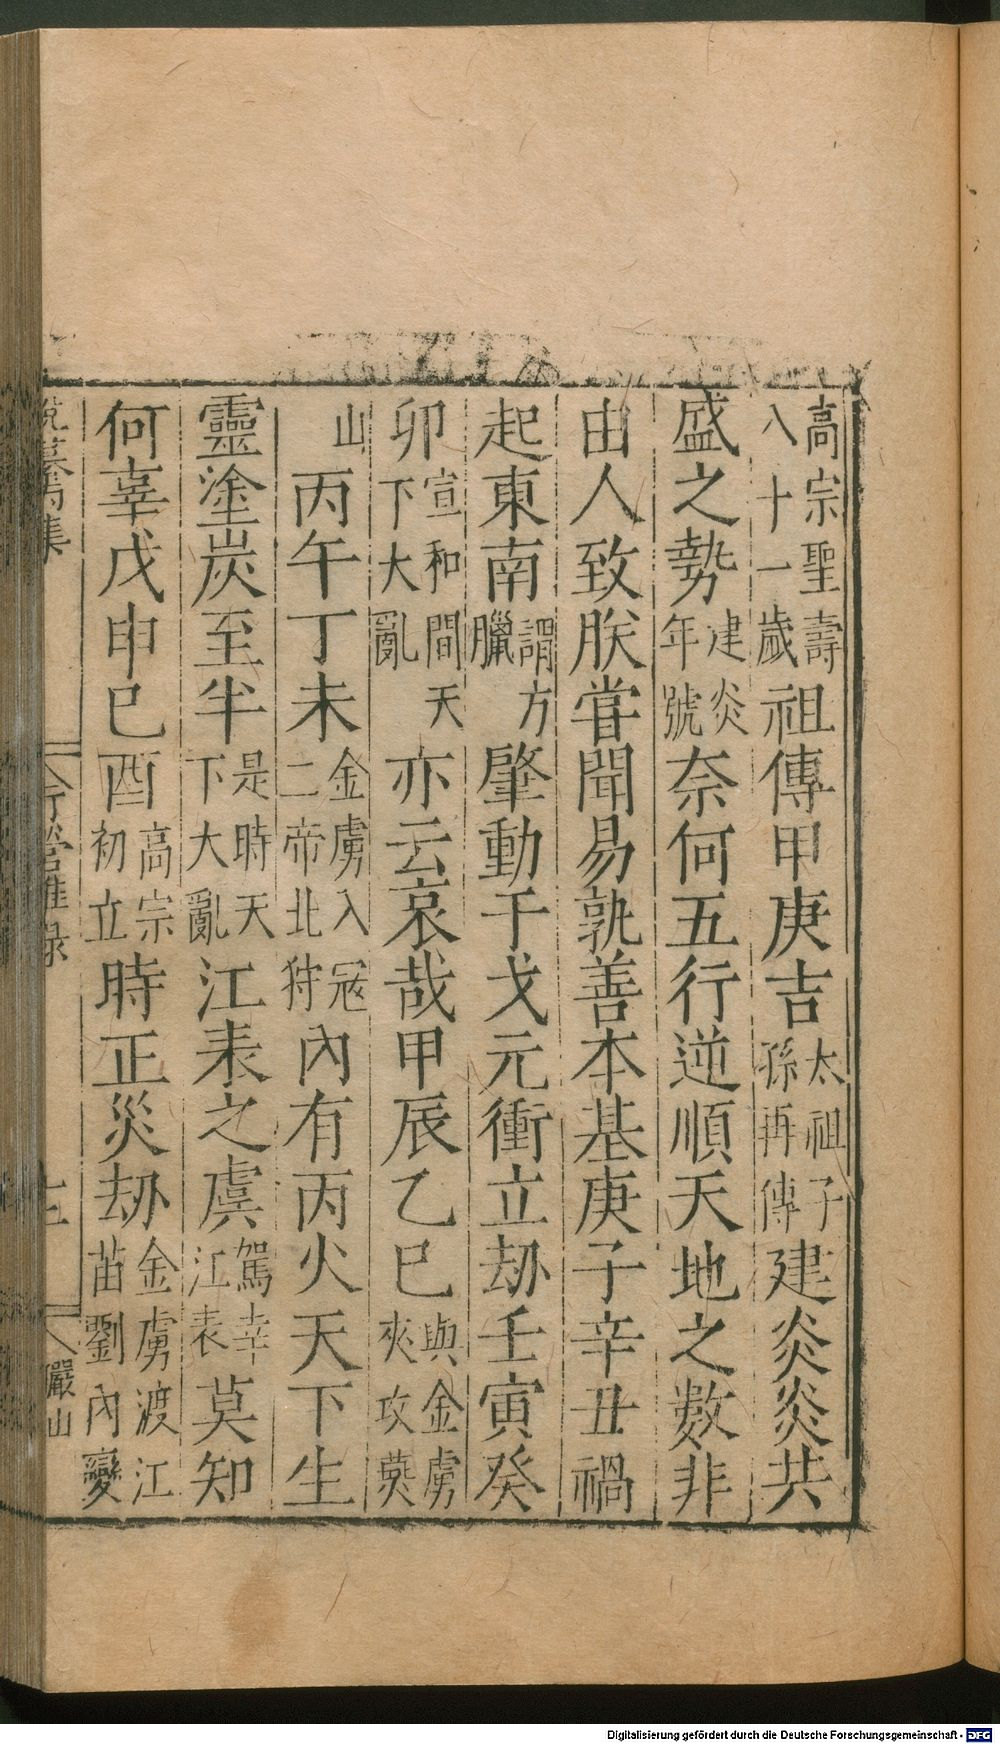 高宗聖壽八十一歲祖傳甲庚吉太祖子孫再傳建炎炎共
盛之勢建炎年號奈何五行逆順天地之數非
由人致朕嘗聞易孰善本基庚子辛丑禍
起東南謂方臘肇動干戈元衝立劫壬寅癸
卯宣和間天下大亂亦云哀哉甲辰乙巳與金虜夾攻燕
山丙午丁未金虜入冦二帝北狩內有丙火天下生
靈塗炭至半是時天下大亂江表之虞駕幸江表莫知
何辜戊申巳酉高宗初立時正災劫金虜渡江苗劉內變
稾集
錄
儼山
Digitalisierung gefördert durch die Deutsche Forschungsgemeinschaft - DFG